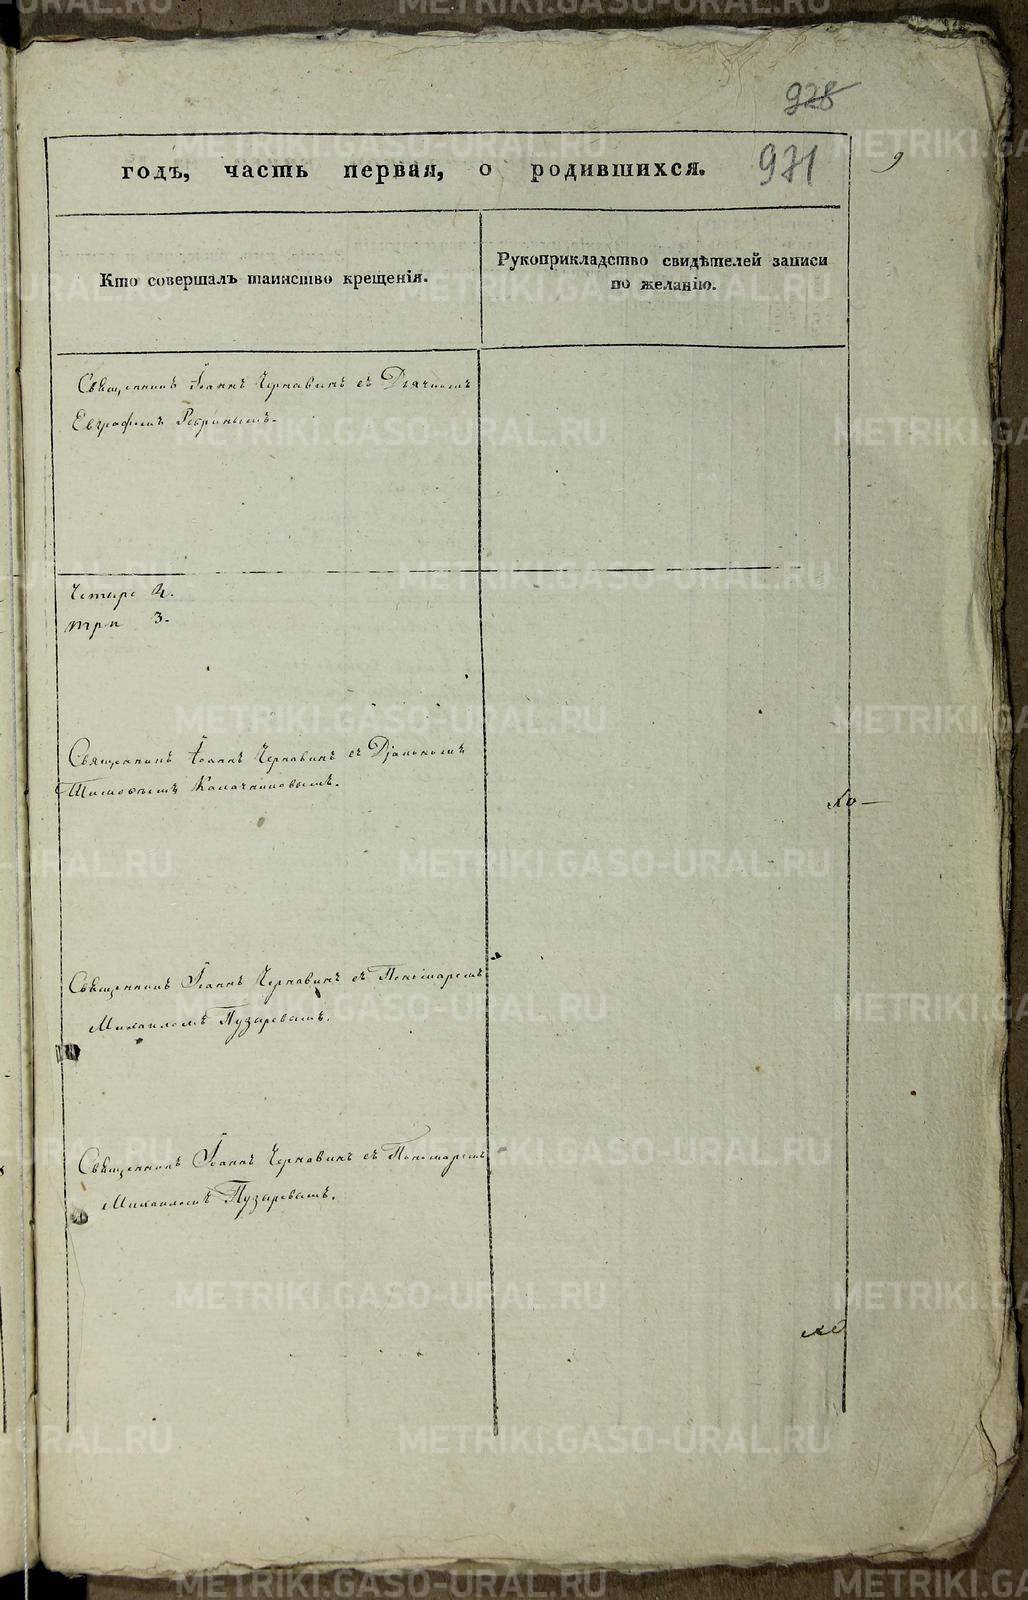 928
годъ, часть первая, о родившихся. 931
9
Кто совершалъ таинство крещенія.
Рукоприкладство свидѣтелей записи
по желанію.
Священникъ Іоаннъ Чернавинъ съ Дьячкомъ
Евграфомъ
Четыре 4.
три 3.
Священникъ Іоаннъ Чернавинъ съ Діакономъ
Тимофѣемъ Калачниковымъ.
Священникъ Іоаннъ Чернавинъ съ Пономаремъ
Михаиломъ Пузыревымъ.
Священникъ Іоаннъ Чернавинъ съ Пономаремъ
Михаиломъ Пузыревымъ.
METRIKI.GASO-URAL.RU